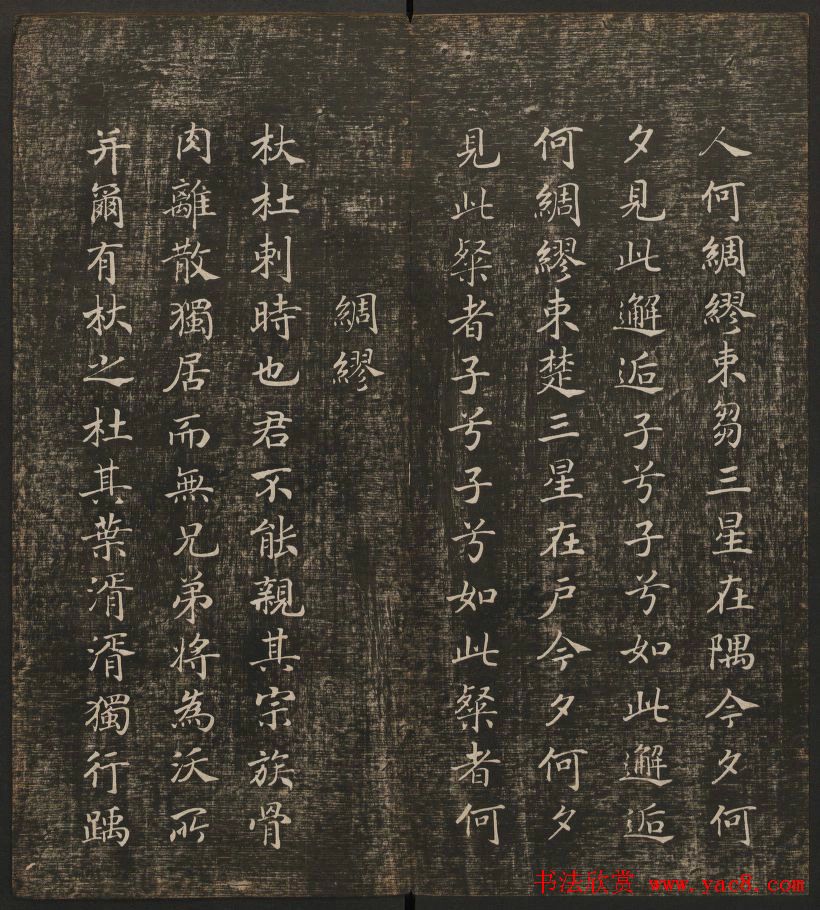 人何綢繆束芻三星在隅今夕何
夕見此邂逅子兮子兮如此邂逅
何綢繆束楚三星在戶今夕何夕
見此粲者子兮子兮如此粲者何
綢繆
杕杜刺時也君不能親其宗族骨
肉離散獨居而無兄弟將為沃所
并爾有杕之杜其葉湑湑獨行踽
书法欣赏 www.yac8.com